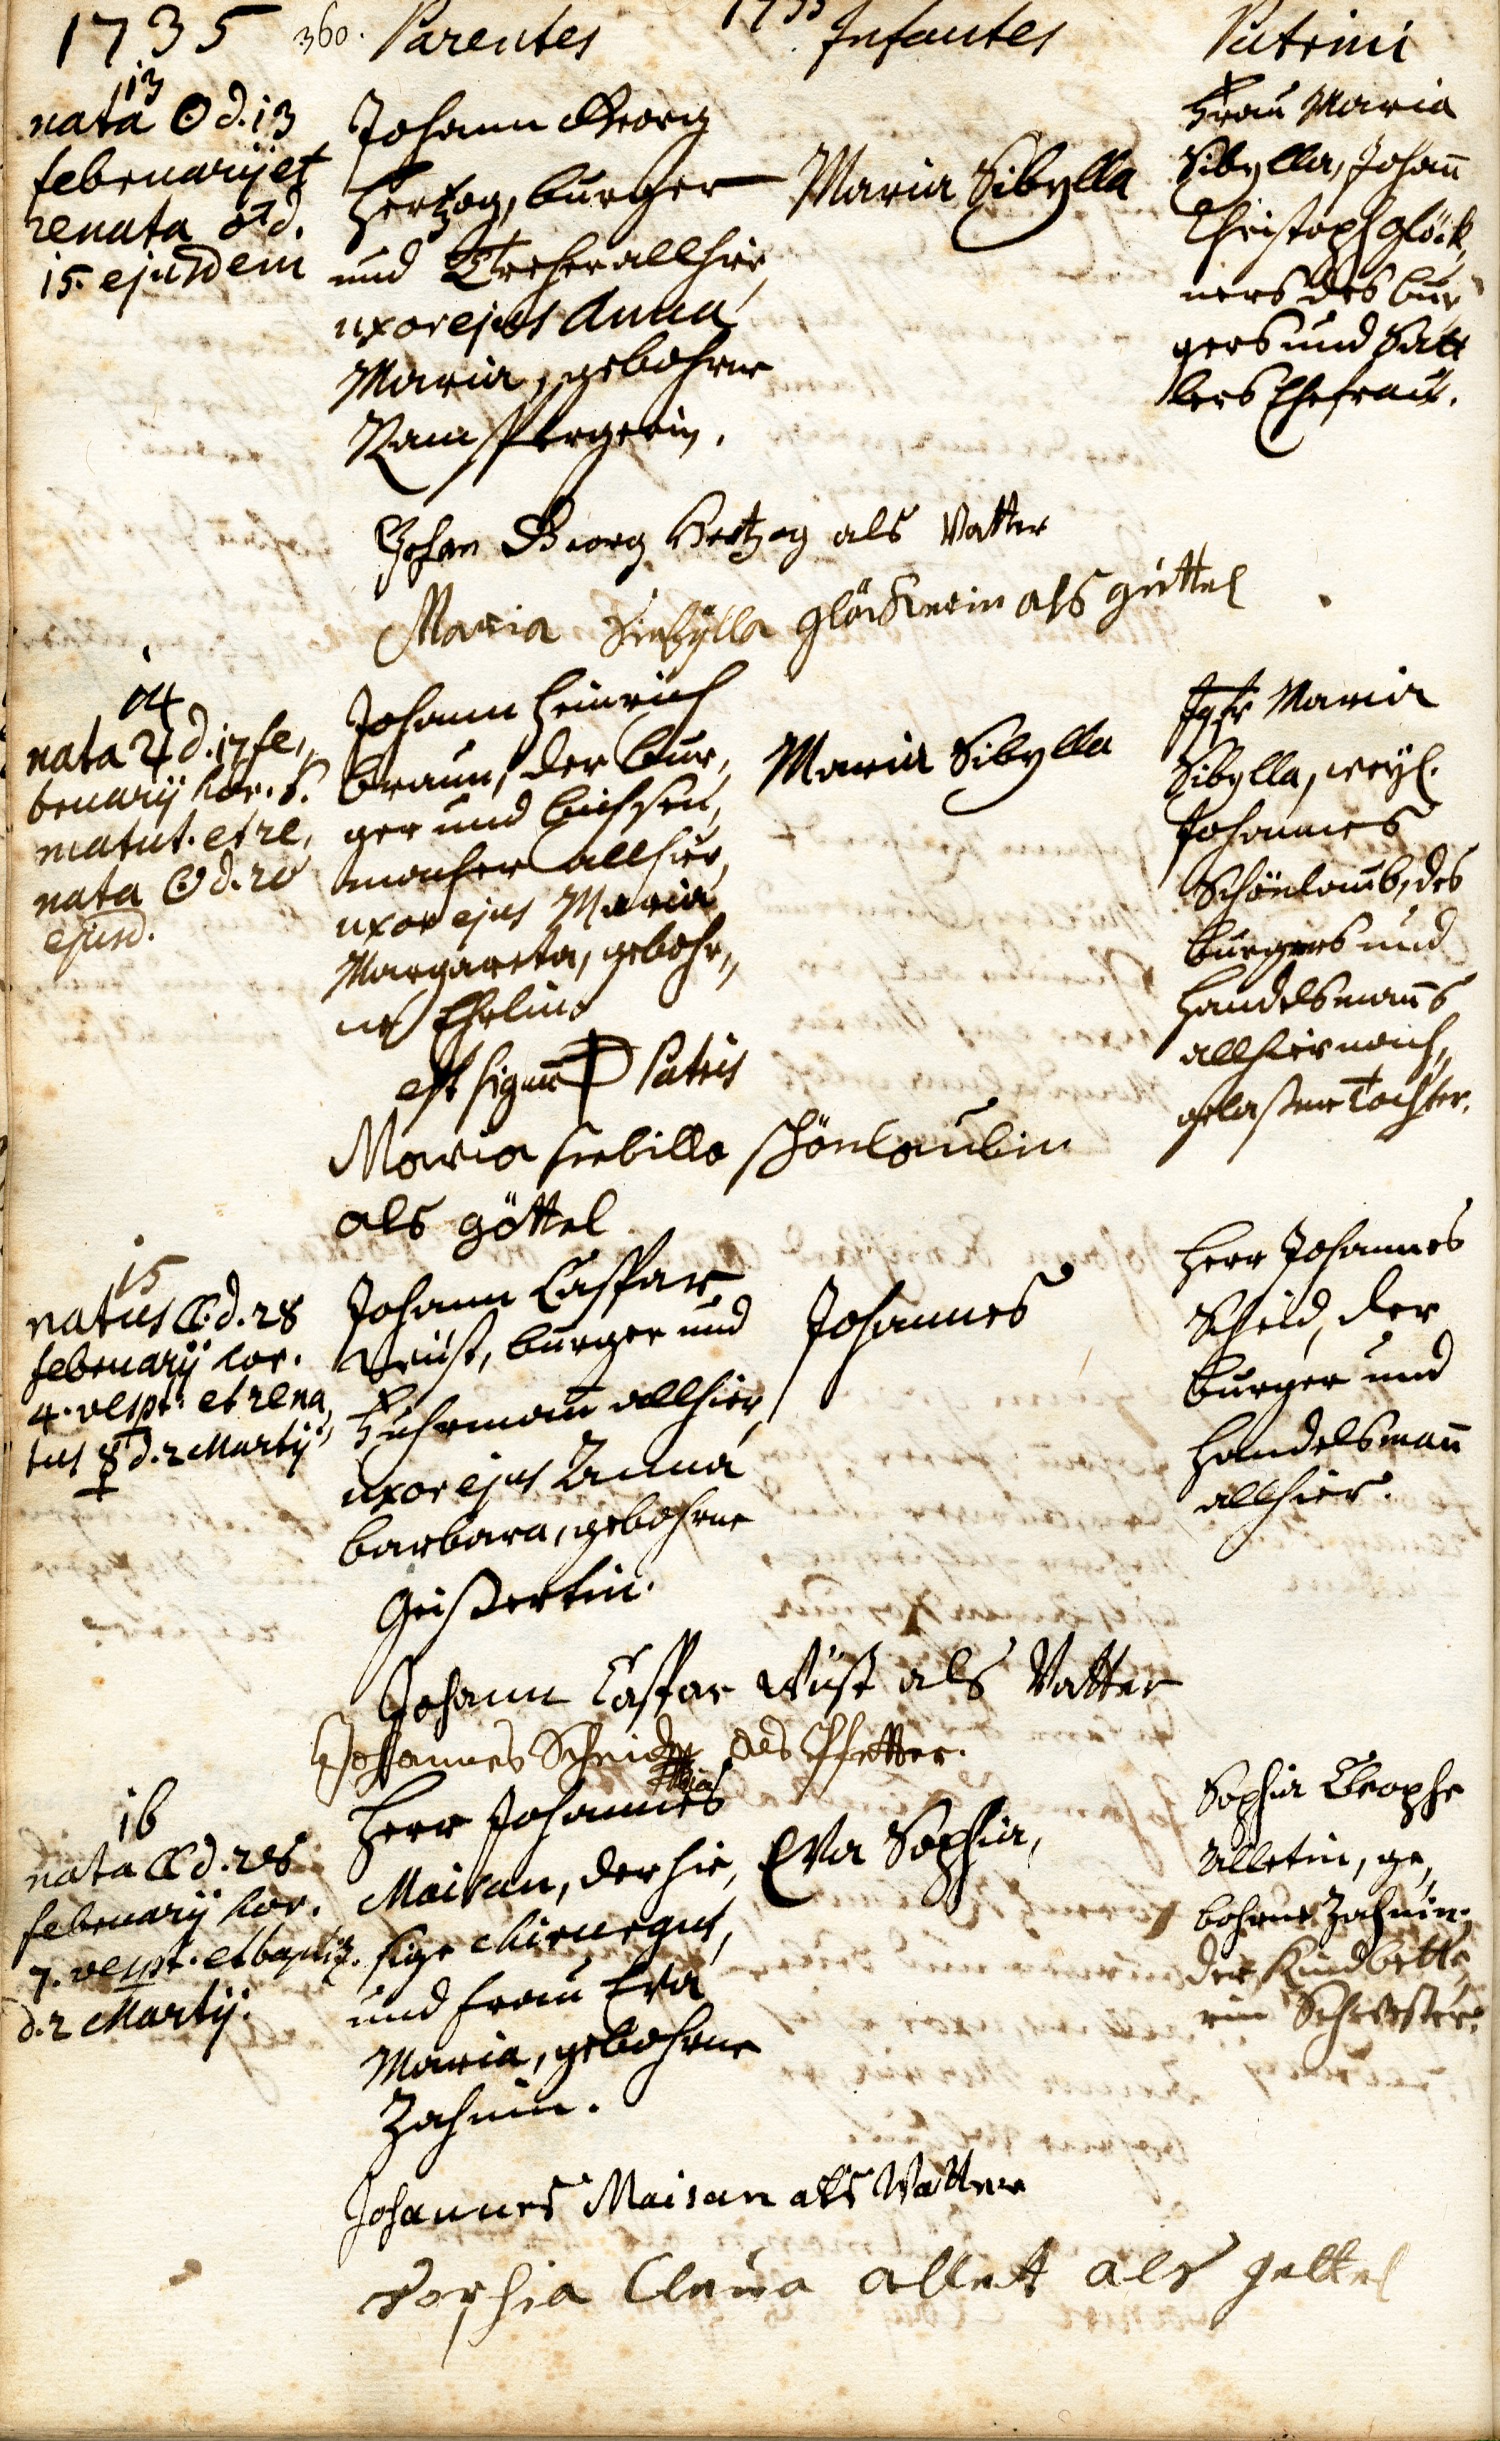 1735 360. Parentes 1735 Infantes Patrini
13
nata ☉ d. 13
februarij et
renata ♂ d.
15. ejusdem
Johann Georg
Hertzog, burger
und Becher allhier,
uxor ejus Anna
Maria, gebohrne
Ramspergerin.
Maria Sibylla
Frau Maria
Sibylla, Johann
Christoph Glöck,
ners des bur,
gers und Satt
lers Ehefrau.
Johan Georg Hertzog als Vatter
Maria Siebÿlla glöcknerin als göttel
14
nata ♃ d. 17 fe,,
bruarij hor. 8.
matut. et re,
nata ☉ d. 20
ejusd.
Johann Heinrich
Braun, der bur,
ger und büchsen,
macher allhier,
uxor ejus Maria
Margareta, gebohr,,
ne Ehrlin
Maria Sibylla
Jgfr Maria
Sibylla, weyl.
Johannes
Schönlaub, des
burgers und
Handelsmanns
allhier nach,,
gelaßene Tochter.
est signum Patris
Maria siebilla schönlaubin
als göttel
15
natus ☾ d. 28
februarij hor.
4. vespt. et rena,
tus ☿ d. 2 Martij
Johann Caspar
Wüst, burger und
Fuhrmann allhier,
uxor ejus Anna
barbara, gebohrne
Geißertin.
Johannes
Herr Johannes
Scheid, der
burger und
Handelsmann
allhier.
Johann Caspar Wüst als Vatter
Johannes Scheid als Pfetter.
16
nata ☾ d. 28
februarij hor.
7. vespt. et baptiz.
d. 2 Martij.
Herr Johannes
Maisan, der hie,
sige Chirurgus,
und frau Eva
Maria, gebohrne
Zahnin.
Eva Sophia,
Sophia Cleophe
Alletin, ge,
bohrne Zahnin,
der Kindbette,
rin Schwester.
Johannes Maisan als Vatter
Sophia allett als gettel